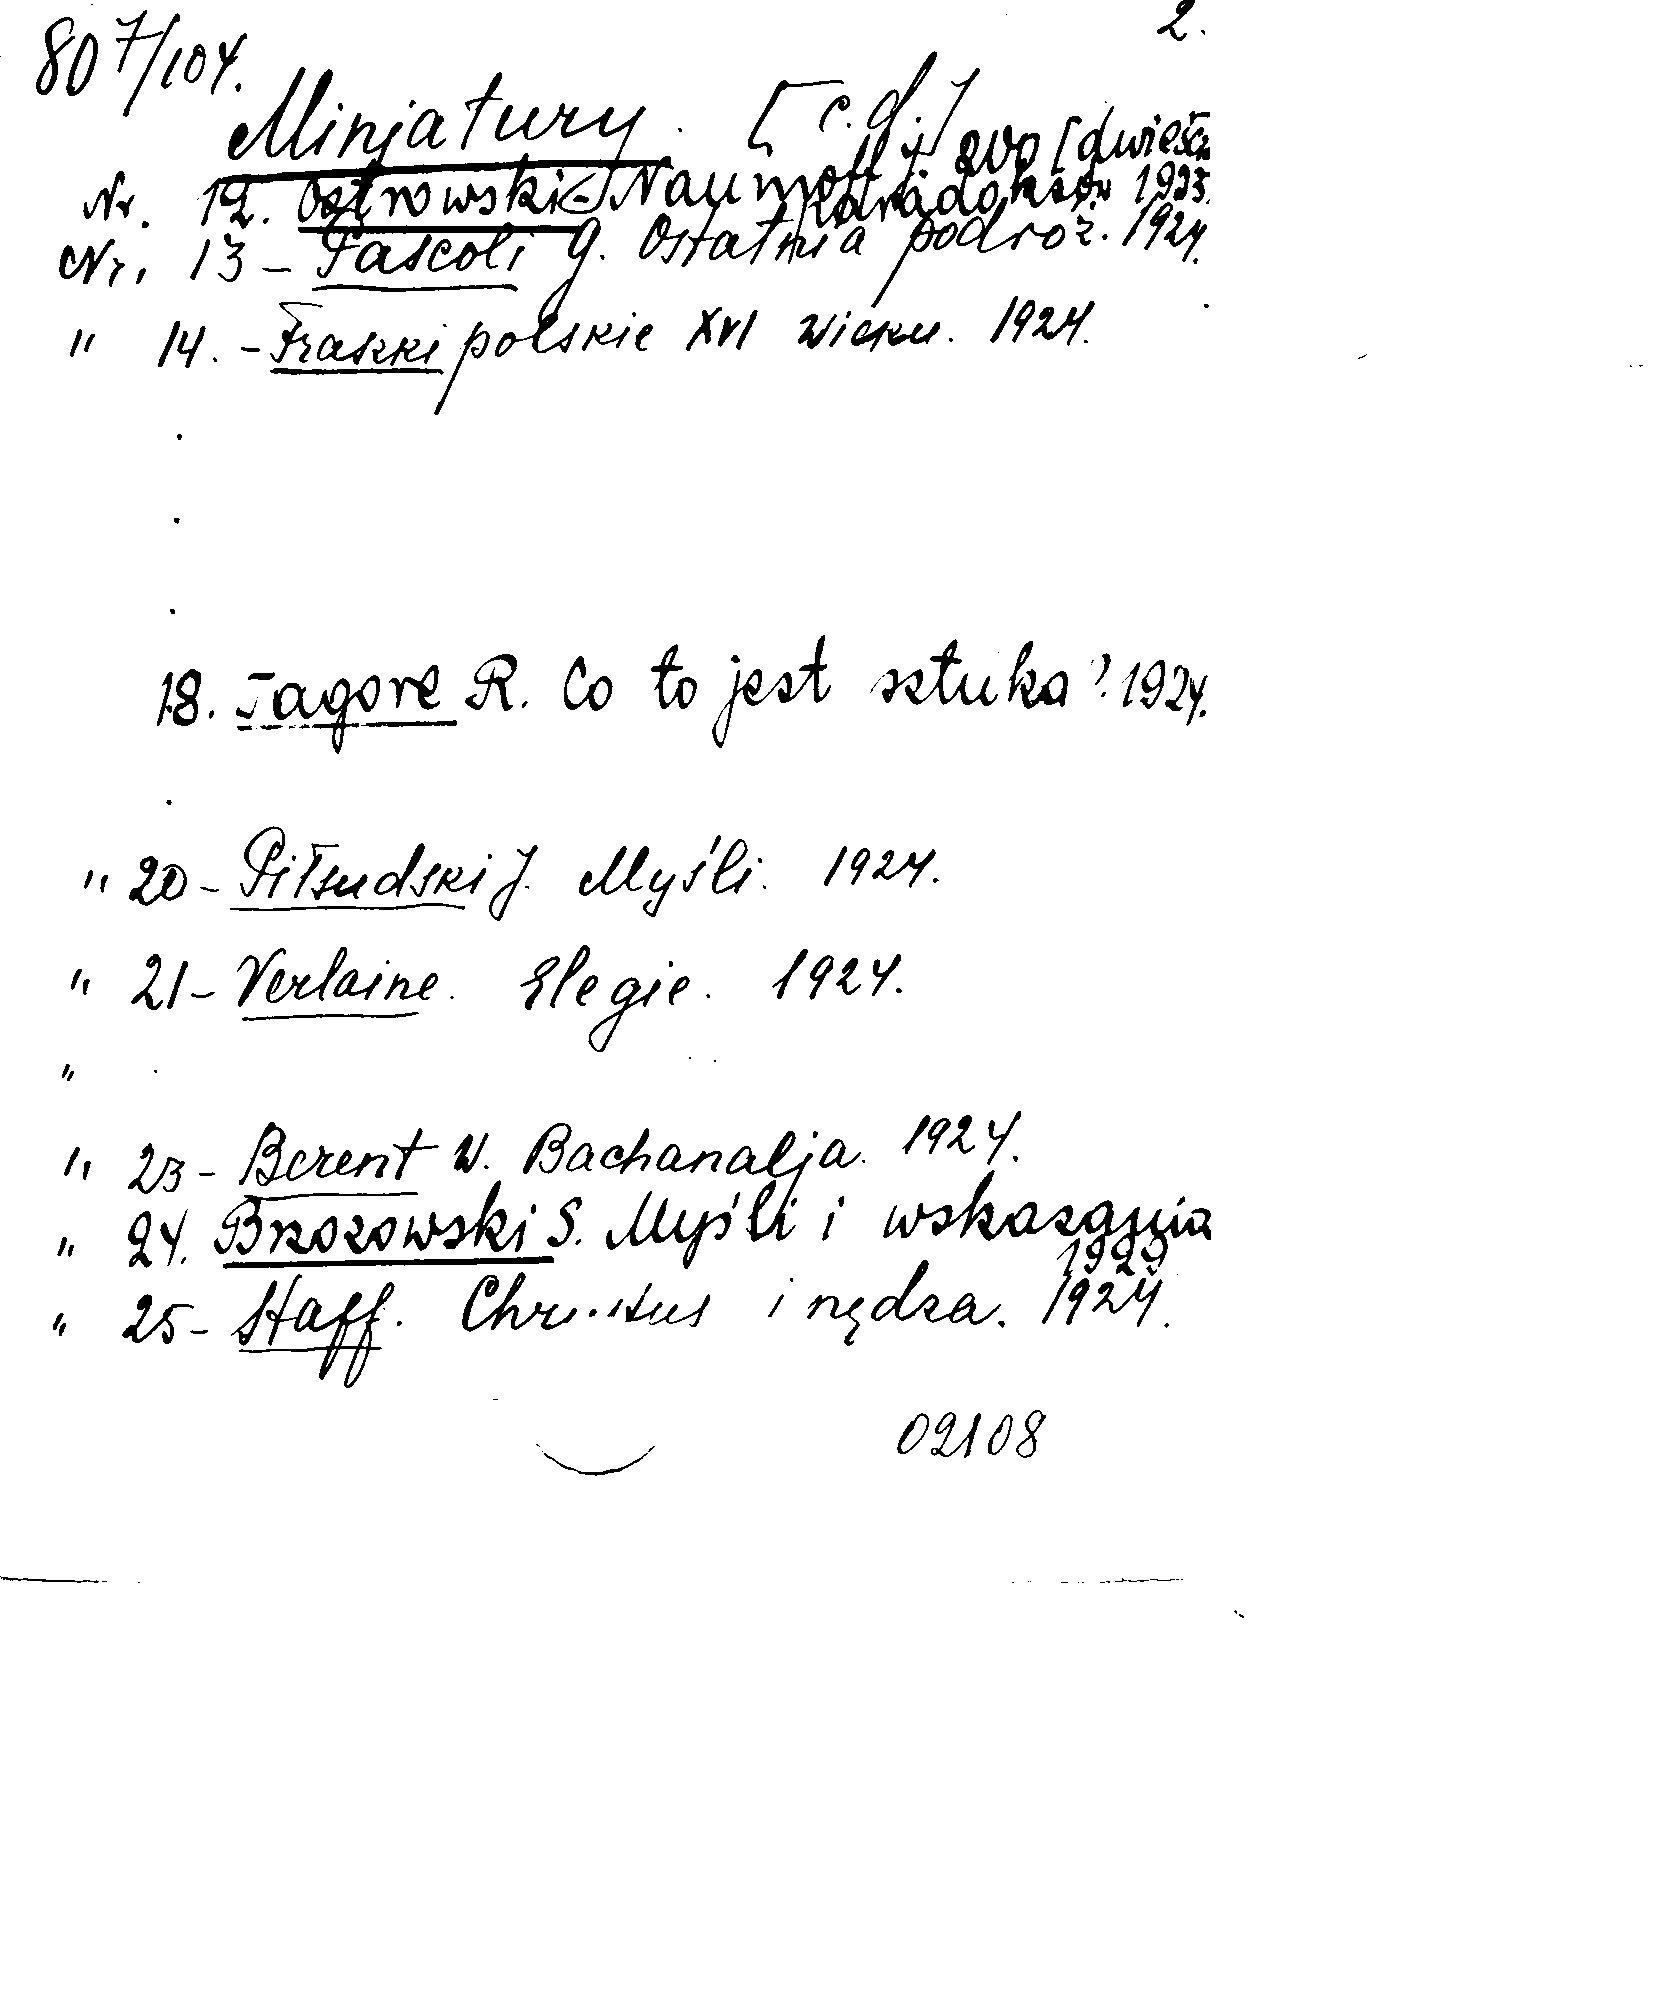 2.
807/104.
Minjatury. [c.d.]
Nr. 12. Ostrowski-Naumoff J. 200 [dwieście
paradoksów 1923.
Nr. 13 - Pascoli G. Ostatnia podroż. 1924.
" 14. - Fraszki polskie XVI wieku. 1924.
18. Tagore R. Co to jest sztuka? 1924.
" 20 - Piłsudski J. Myśli. 1924.
" 21 - Verlaine. Elegie. 1924.
"
" 23 - Berent W. Bachanalja. 1924.
" 24. Brzozowski S. Myśli i wskazania
1929
" 25 - Staff. Chrystus i nędza. 1924.
02108